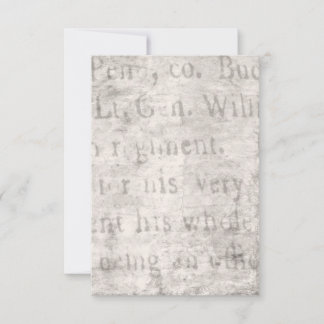 Penn, co. Buc
Lt. Gen. Willi
regiment.
for his very
ent his whole
being an othe